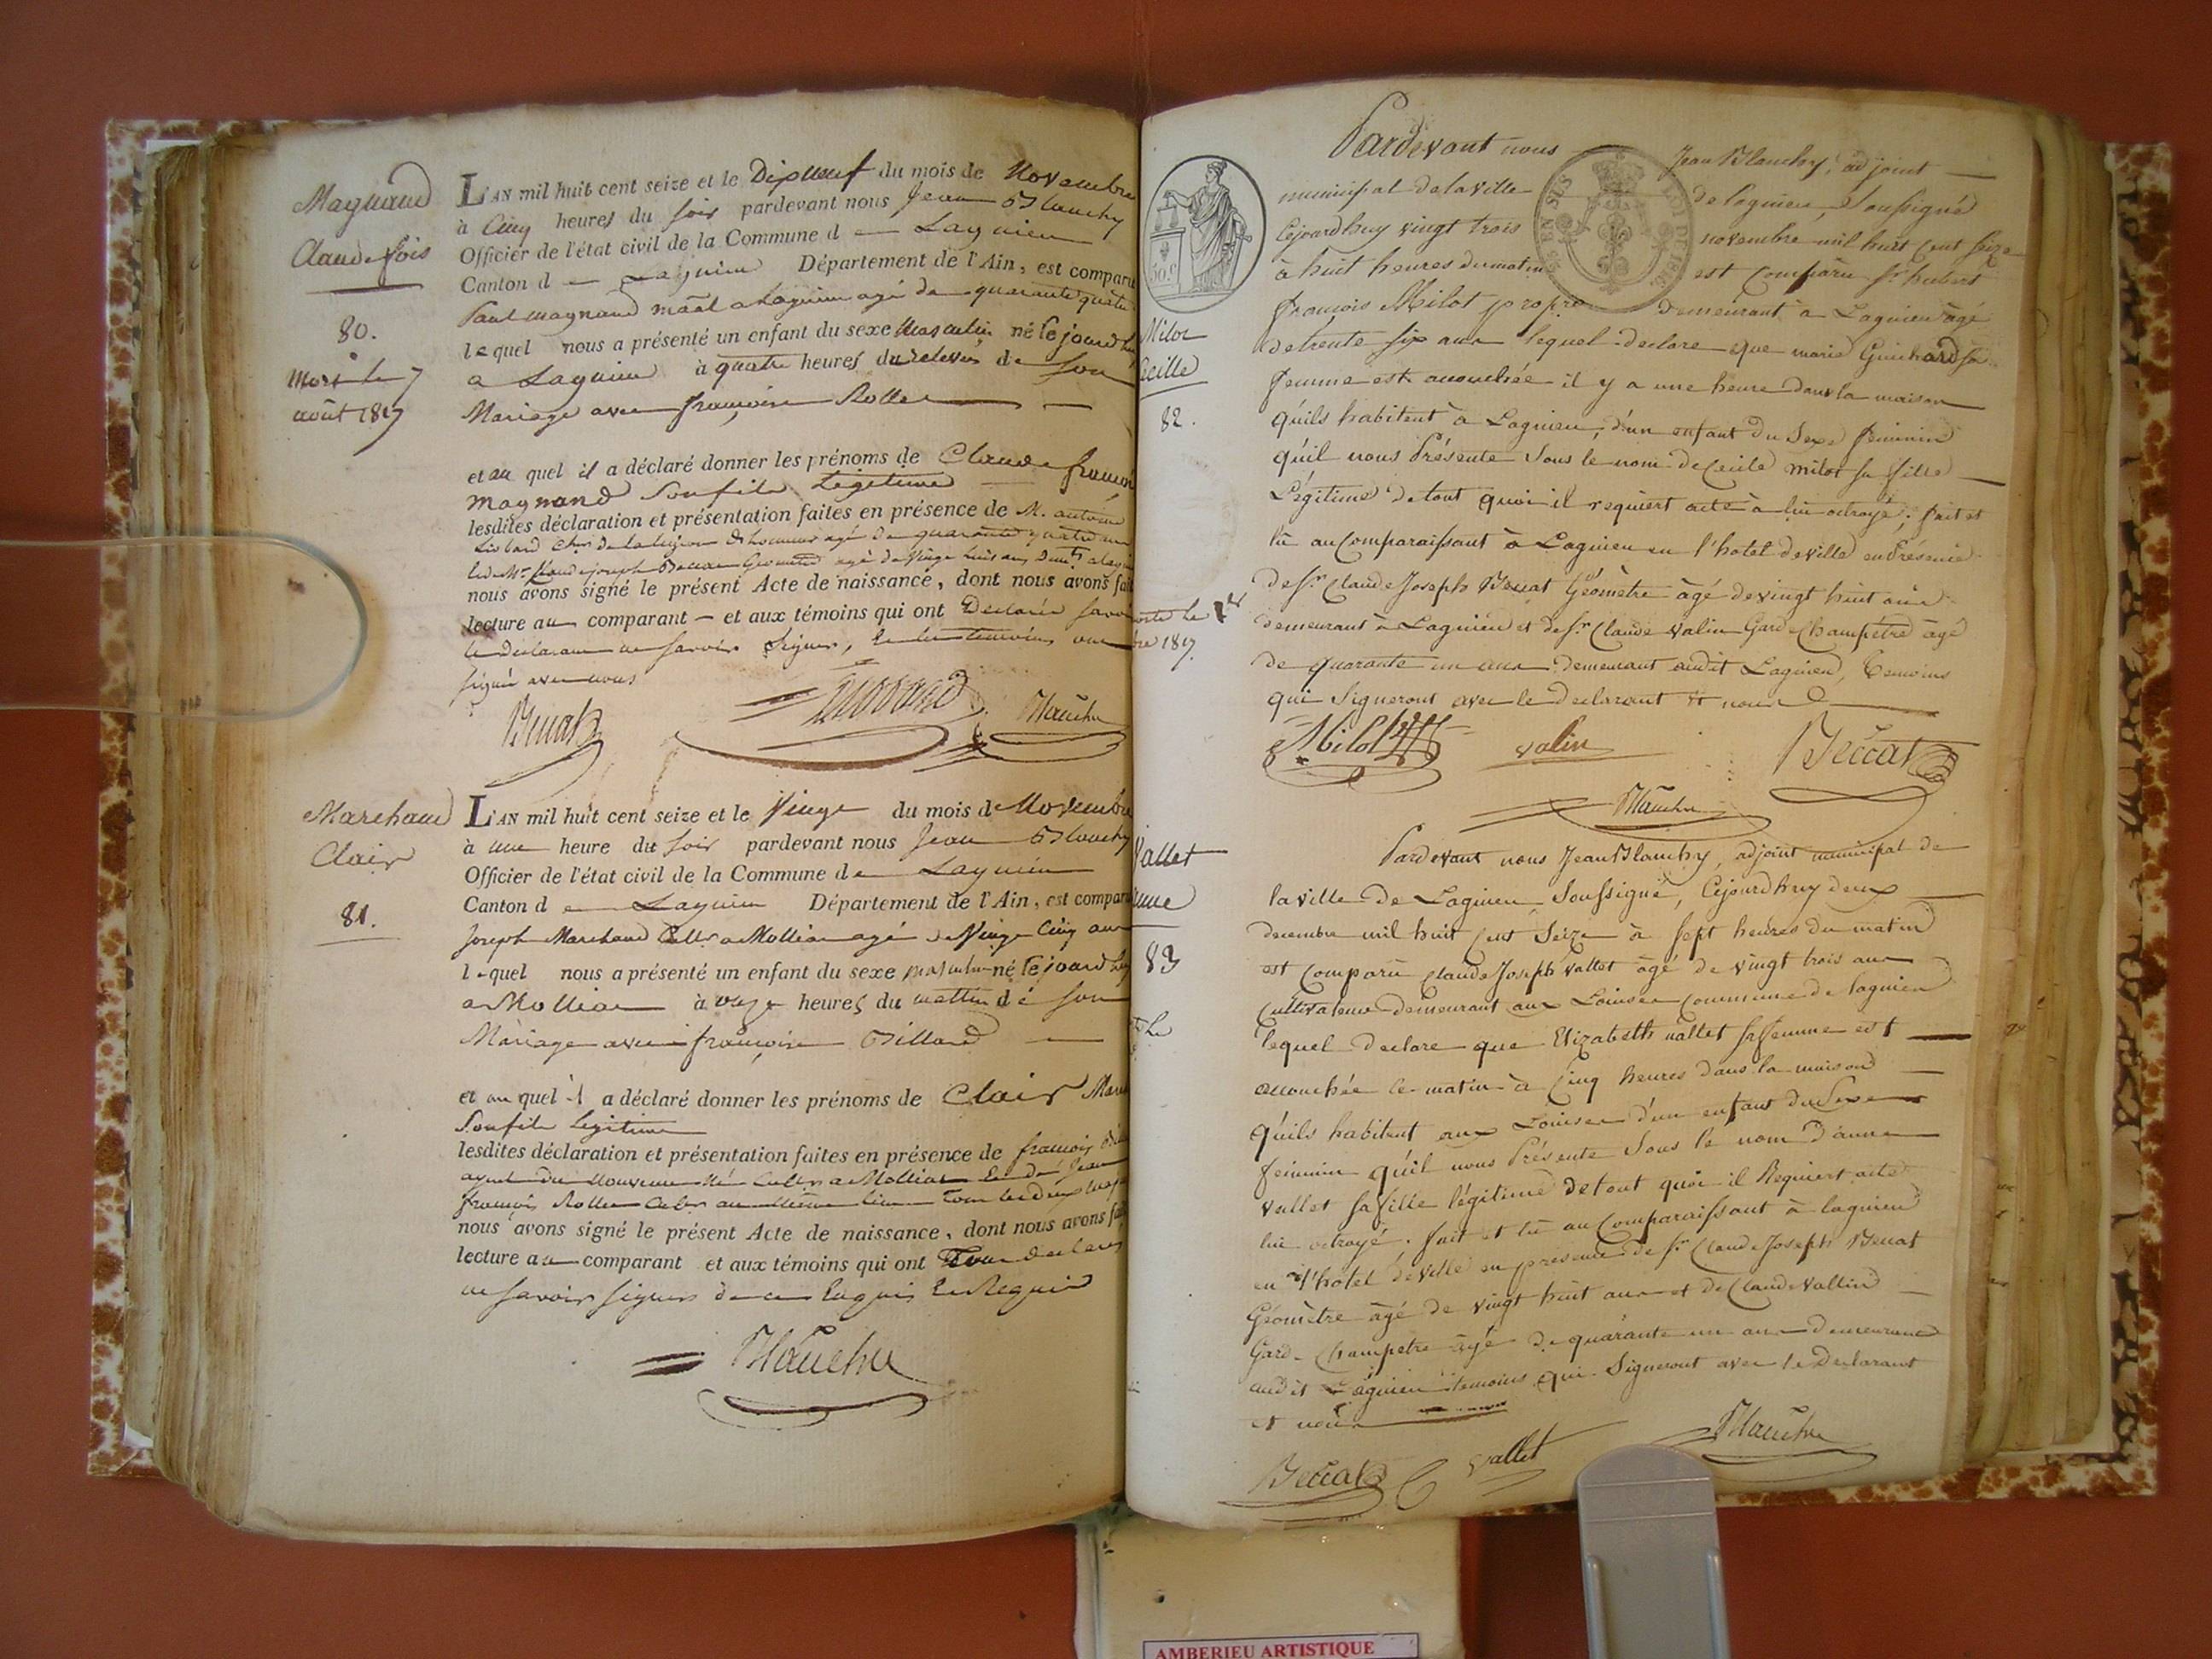 Magnand
Claude fois
80.
Mort le 7
août 1817
L'AN mil huit cent seize et le Dixneuf du mois de Novembre
à Cinq heures du soir pardevant nous Jean Blanchy
Officier de l'état civil de la Commune d e Lagnieu
Canton d e Lagnieu Département de l'Ain, est comparu
Paul magnand à Lagnieu agé de quarante quatre
lequel nous a présenté un enfant du sexe Masculin né cejourd'huy
a Lagnieu à quatre heures du relevés de son
Mariage avec françoise Rollet
et au quel il a déclaré donner les prénoms de Claude françois
magnand Son fils Legitime
lesdites déclaration et présentation faites en présence de M. antoine
de la legion d'honneur agé de quarante quatre ans
Claude joseph Beccat Géometre agé de vingt huit ans
nous avons signé le présent Acte de naissance, dont nous avons fait
lecture au comparant - et aux témoins qui ont Declaré savoir
le declarant ne savoir signer, et les temoins ont
signé avec nous
Beccat Blanchy
Marchand
Clair
81.
L'AN mil huit cent seize et le Vingt du mois de Novembre
à une heure du soir pardevant nous Jean Blanchy
Officier de l'état civil de la Commune de Lagnieu
Canton d e Lagnieu Département de l'Ain, est comparu
Joseph Marchand Cultr a Mollian agé de Vingt Cinq ans
lequel nous a présenté un enfant du sexe masculin né cejourd'huy
a Mollian à onze heures du mattin dé son
Mariage avec françoise Billard
et au quel il a déclaré donner les prénoms de Clair
Son fils Legitime
lesdites déclaration et présentation faites en présence de françois
ayeul du nouveau né Cultr a Mollian et de Jean
françois Rollet Cultr au même lieu tous les deux
nous avons signé le présent Acte de naissance, dont nous avons fait
lecture au comparant et aux témoins qui ont Tous declarés
ne savoir signer de ce Enquis et Requis
Blanchy
Milot
Cecille
82.
1er
bre 1817
Vallet
anne
83
le
50.C
EN SUS
LOI DE 1816
Pardevant nous Jean Blanchy, adjoint
municipal de la ville de lagnieu, Soussigné
Cejourdhuy vingt trois novembre mil huit cent seize
à huit heures du matin est Comparu sr. hubert
françois Milot propre demeurant à Lagnieu âgé
de trente six ans lequel declare que marie Guichard sa
femme est accouchée il y a une heure dans la maison
qu'ils habitent à Lagnieu, d'un enfant du Sexe feminin
qu'il nous Présente Sous le nom de Cecile milot sa fille
Légitime de tout quoi il requiert acte à lui octroyé; fait et
lû au Comparaissant à Lagnieu en l'hotel de ville en Présence
de sr. Claude Joseph Beccat Géomètre âgé de vingt huit ans
demeurant à Lagnieu et de sr. Claude valin Garde Champêtre âgé
de quarante un ans demeurant audit Lagnieu, temoins
qui Signeront avec le declarant et nous
Milot valin Beccat
Blanchy
Pardevant nous Jean Blanchy, adjoint municipal de
la ville de Lagnieu Soussigné, Cejourdhuy deux
decembre mil huit Cent Seize à sept heures du matin
est Comparu Claude Joseph vallet âgé de vingt trois ans
Cultivateur demeurant aux Louises Commune de lagnieu
lequel declare que Elizabeth vallet sa femme est
accouchée ce matin à Cinq heures dans la maison
qu'ils habitent aux Louises d'un enfant du Sexe
feminin qu'il nous Présente Sous le nom d'anne
vallet sa fille légitime de tout quoi il Requiert acte
lui octroyé; fait et lû au Comparaissant à lagnieu
en l'hotel de ville en presence de sr. Claude Joseph Beccat
Géomètre âgé de vingt huit ans et de Claude vallin
Garde Champetre âgé de quarante un ans demeurant
audit Lagnieu temoins qui Signeront avec le declarant
et nous
Beccat vallet Blanchy
AMBERIEU ARTISTIQUE